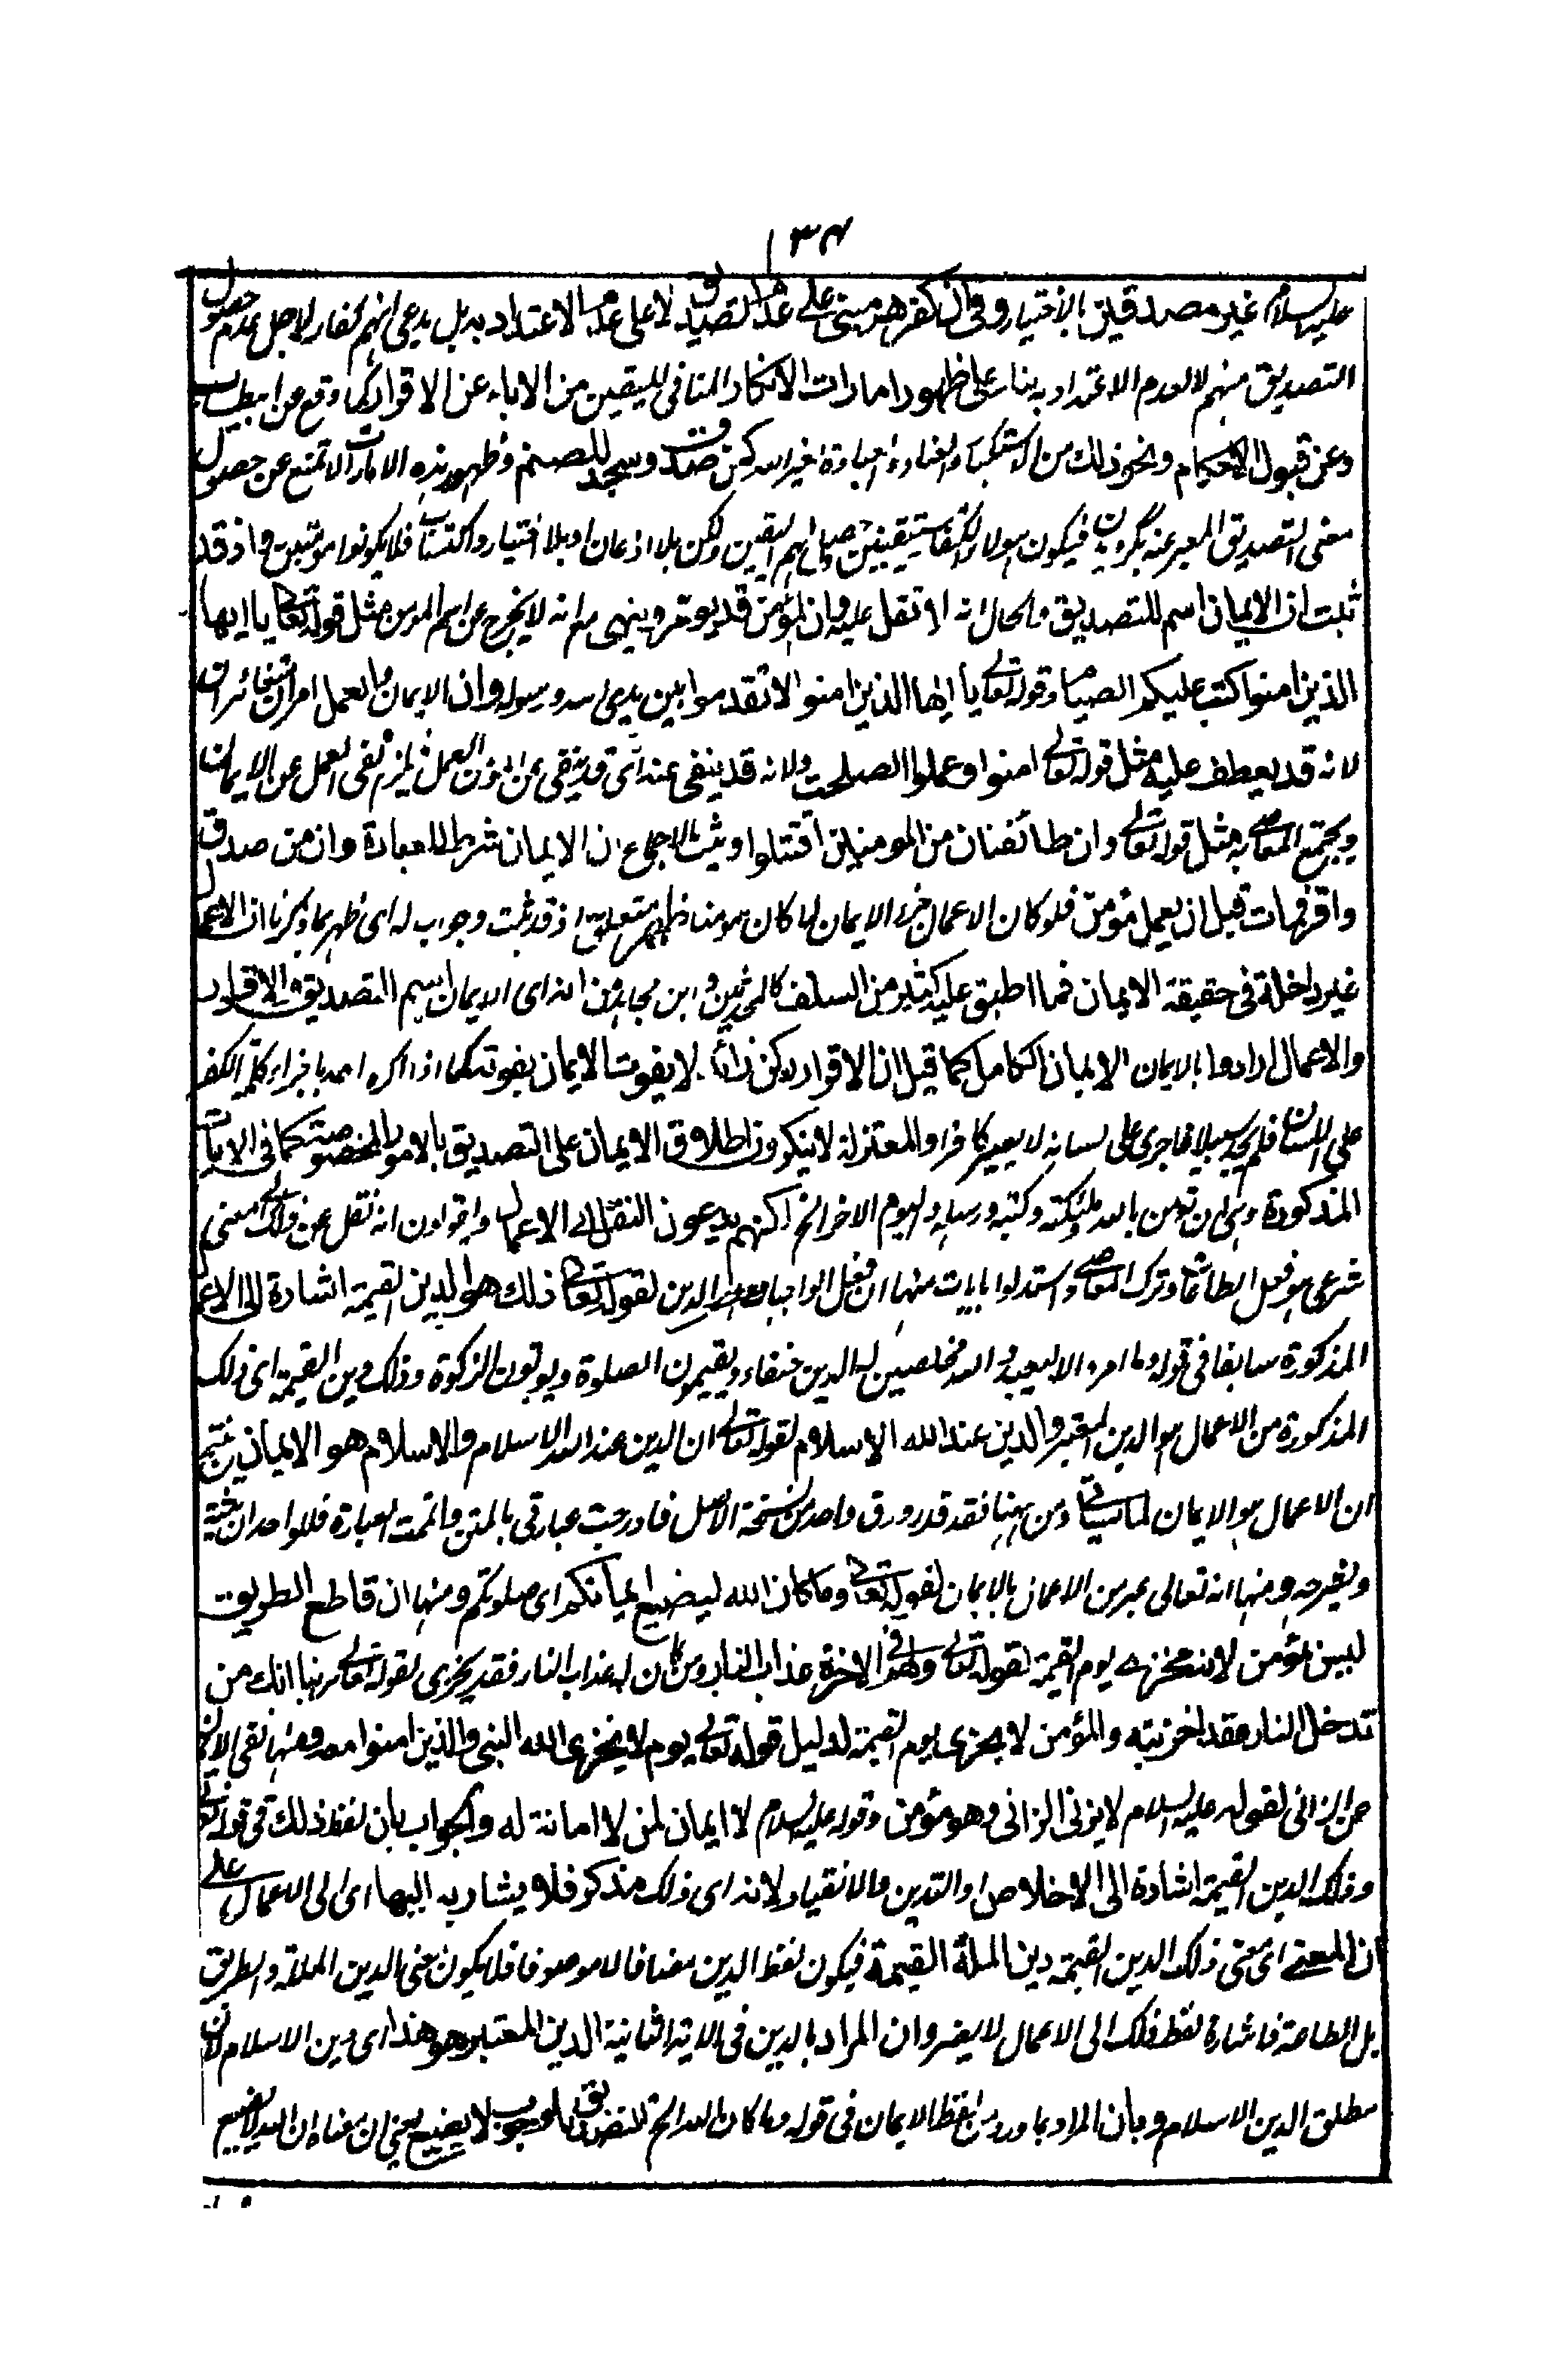 ١٣٤
عليه السلام غير مصدقين بالاختيار وفى ان كفرهم مبنى على عدم التصديق لا على عدم الاعتداد به بل يدعى انهم كفار لاجل عدم حصول
التصديق منهم لا لعدم الاعتداد به بناء على ظهور امارات الانكار المنافى لليقين من الاباء عن الاقرار كما وقع عن ابيطالب
وعن قبول الاحكام ونحو ذلك من الاستكبار والعناد او عبادة غير الله كمن صدق وسجد للصنم وظهور هذه الامارات لا تمنع عن حصول
معنى التصديق المعبر عنه بگرويدن فيكون هولاء الكفار مستيقنين حصول لهم اليقين ولكن بلا اذعان او بلا اختيار واكتساب فلا يكونوا مؤمنين واذ قد
ثبت ان الايمان اسم للتصديق والحال انه لا نقل عليه وان المؤمن قد يومر وينهى مع انه لا يخرج عن اسم المومن مثل قوله تعالى يا ايها
الذين امنوا كتب عليكم الصيام وقوله تعالى يا ايها الذين امنوا لا تقدموا بين يدى الله ورسوله وان الايمان والعمل امران متغائران
لانه قد يعطف عليه مثل قوله تعالى امنوا وعملوا الصلحت ولانه قد ينفى عنه اى قد ينفى عن العمل نفى العمل عن الايمان
ويجتمع المعاصى به مثل قوله تعالى وان طائفتان من المومنين اقتتلوا ويثبت بالاجماع ان الايمان شرط للعبادة وان من صدق
واقر فمات قبل ان يعمل مؤمن فلو كان الاعمال جزء الايمان لما كان مومنا ظهر متعلق اذ قد ثبت وجواب له اى ظهر بما ذكرنا ان الاعمال
غير داخلة فى حقيقة الايمان فما اطبق عليه كثير من السلف كالمحدثين وابن مجاهد من انه اى الايمان اسم التصديق والاقرار
والاعمال ارادوا بالايمان الايمان الكامل كما قيل ان الاقرار ركن زائد لا يفوت الايمان بفوته كما اذا اكره احد باجراء كلمة الكفر
على اللسان فلم يجد سبيلا فاجرى على لسانه لا يصير كافرا والمعتزلة لا ينكرون اطلاق الايمان على التصديق بالامور المخصوصة كما فى الايات
المذكورة وهى ان تومن بالله وملئكته وكتبه ورسله واليوم الاخر الخ لكنهم يدعون النقل الى الاعمال ويقولون انه نقل عن ذلك الى معنى
شرعى هو فعل الطاعات وترك المعاصى واستدلوا بايات منها ان فعل الواجبات هو الدين لقوله تعالى ذلك هو الدين القيمة اشارة الى الاعمال
المذكورة سابقا فى قوله وما امروا الا ليعبدوا الله مخلصين له الدين حنفاء ويقيمون الصلوة ويوتون الزكوة وذلك دين القيمة اى ذلك
المذكورة من الاعمال هو الدين المعتبر والدين عند الله الاسلام لقوله تعالى ان الدين عند الله الاسلام والاسلام هو الايمان فينتج
ان الاعمال هو الايمان لما سياتى ومن ههنا فقد قدر ورق واحد من نسخة الاصل فادرجت عبارتى بالمتن واتممت العبارة فللواحد ان يتحققه
ويغيره ومنها انه تعالى عبر من الاعمال بالايمان لقوله تعالى وما كان الله ليضيع ايمانكم اى صلوتكم ومنها ان قاطع الطريق
ليس بمؤمن لانه مخزى يوم القيمة لقوله تعالى ولهم فى الاخرة عذاب النار ومن كان له عذاب النار فقد يخزى لقوله تعالى ربنا انك من
تدخل النار فقد اخزيته والمؤمن لا يخزى يوم القيمة لدليل قوله تعالى يوم لا يخزى الله النبى والذين امنوا معه ومنها نفى الايمان
عن الزانى لقوله عليه السلام لا يزنى الزانى وهو مؤمن وقوله عليه السلام لا ايمان لمن لا امانة له والجواب بان لفظ ذلك فى قوله تعالى
وذلك الدين القيمة اشارة الى الاخلاص او التدين والانقياد لانه اى ذلك مذكر فلا يشار به اليها اى الى الاعمال على
ان المعنى اى معنى ذلك الدين القيمة دين الملة القيمة فيكون لفظ الدين مضافا لا موصوفا فلا يكون معنى الدين الملة والطريق
بل الطاعة فاشارة لفظ ذلك الى الاعمال لا يضر وان المراد بالدين فى الاية الثانية الدين المعتبر هو هذا اى دين الاسلام لان
مطلق الدين الاسلام وبان المراد بما ورد من لفظ الايمان فى قوله وما كان الله الخ التصديق بالوجوب لا يضيع يعنى ان معناه ان الله لا يضيع